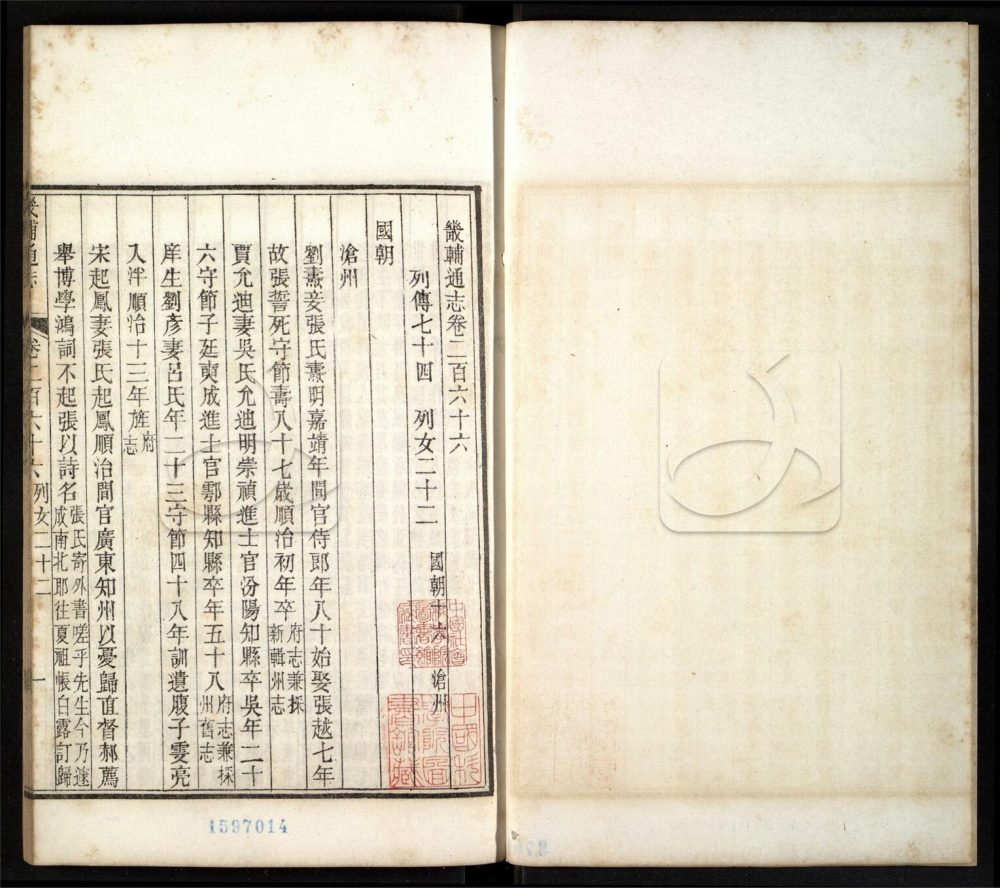 畿輔通志卷二百六十六
列傳七十四 列女二十二 國朝十六 滄州
國朝
滄州
劉燾妾張氏燾明嘉靖年間官侍郎年八十始娶張越七年
故張誓死守節壽八十七歲順治初年卒府志兼採新輯州志
賈允迪妻吳氏允迪明崇禎進士官汾陽知縣卒吳年二十
六守節子廷奭成進士官鄠縣知縣卒年五十八府志兼採州舊志
庠生劉彥妻呂氏年二十三守節四十八年訓遺腹子雯亮
入泮順治十三年旌府志
宋起鳳妻張氏起鳳順治間官廣東知州以憂歸直督郝薦
舉博學鴻詞不起張以詩名張氏寄外書嗟乎先生今乃遂成南北耶往夏祖帳白露訂歸
畿輔通志 卷二百六十六 列女二十二 一
1597014